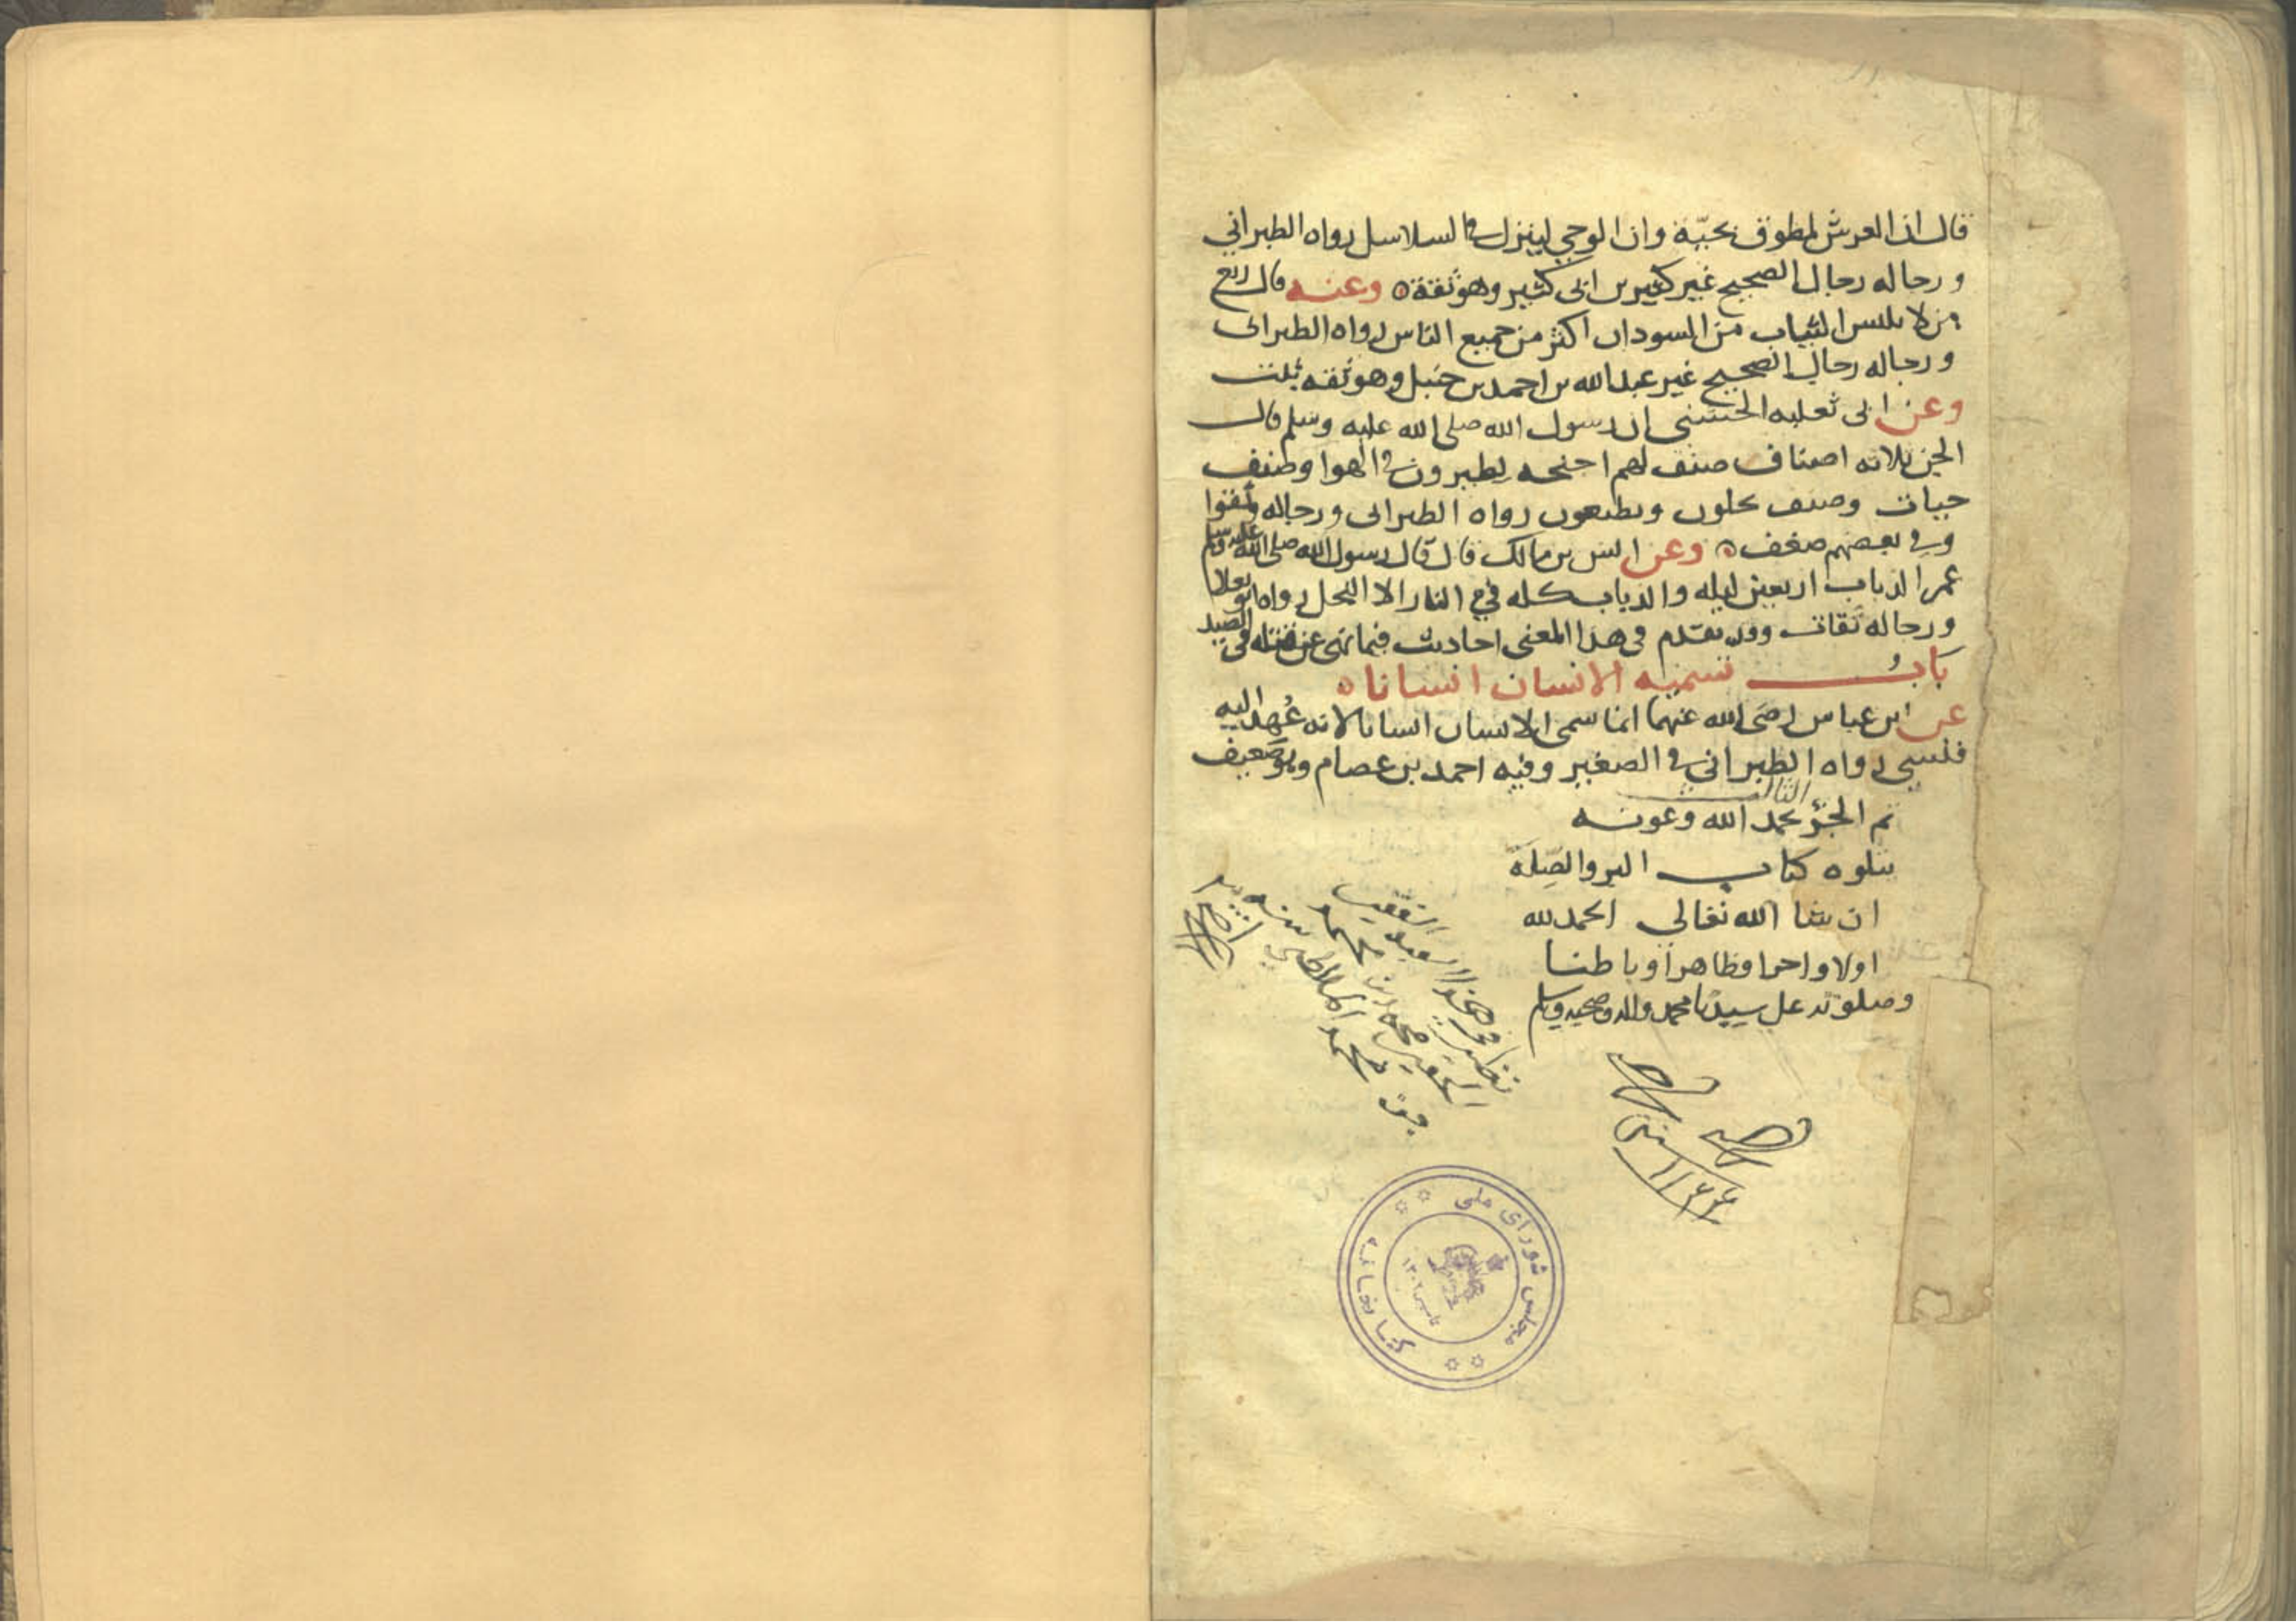 قال ان العرش لمطوق بحيّة وان الوحي لينزل في السلاسل رواه الطبراني
ورجاله رجال الصحيح غير كثير بن ابي كثير وهو ثقة ٥ وعنه قال ربع
من لا يلبس الثياب من السودان اكثر من جميع الناس رواه الطبراني
ورجاله رجال الصحيح غير عبد الله بن احمد بن حنبل وهو ثقه
وعن ابي ثعلبه الخشني ان رسول الله صلى الله عليه وسلم قال
الجن ثلاثه اصناف صنف لهم اجنحه يطيرون في الهوا وصنف
حيات وصنف يحلون ويظعنون رواه الطبراني ورجاله وثقوا
وفي بعضهم ضعف ٥ وعن انس بن مالك قال قال رسول الله صلى الله عليه وسلم
عمر الذباب اربعين ليله والذباب كله في النار الا النحل رواه ابو يعلا
ورجاله ثقات وقد تقدم في هذا المعنى احاديث فيما نهى عن قتله في الصيد
بابُ تسميه الانسان انسانا ٥
عن ابن عباس رضى الله عنهما انما سمى الانسان انسانا لانه عُهد اليه
فنسي رواه الطبراني في الصغير وفيه احمد بن عصام وهو ضعيف
تم الجزؤ الثالث بحمد الله وعونه
يتلوه كتاب البر والصِّلَة
ان شا الله تعالى الحمد لله
اولا واخرا وظاهرا وباطنا
وصلوته على سيدنا محمد واله وصحبه وسلم
سنة ١١٤٤
كتابخانه مجلس شورای ملی